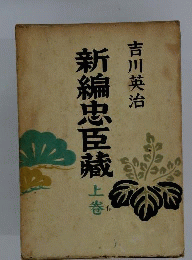 吉川英治
新編忠臣藏
上巻